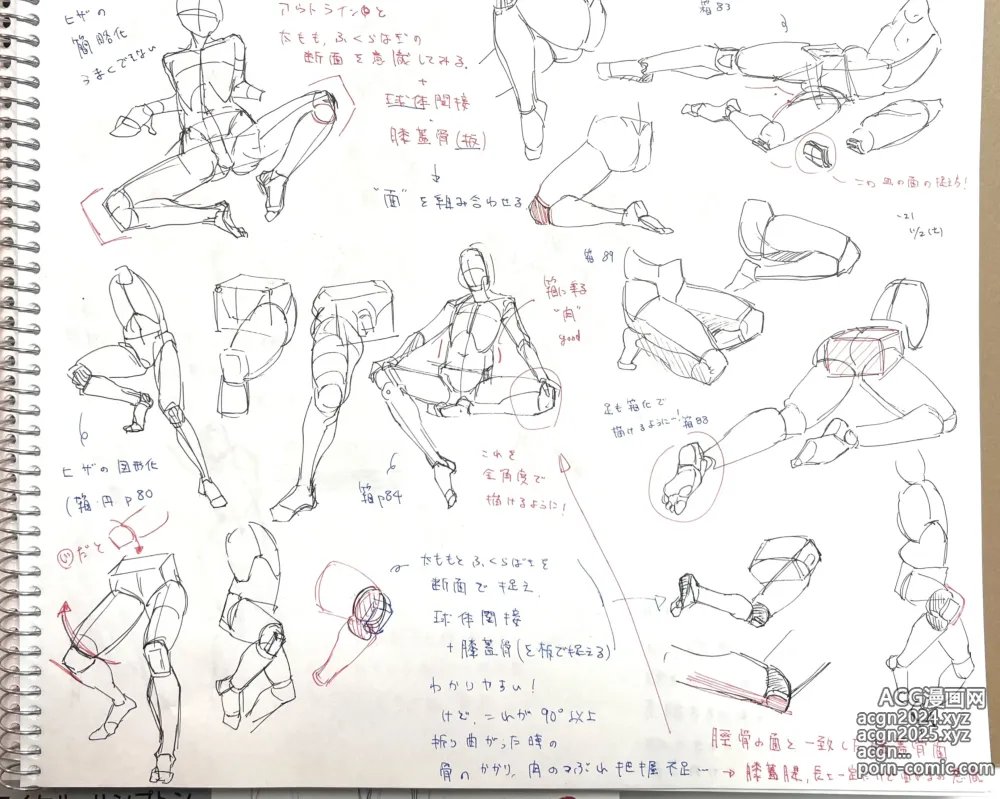 ヒザの
簡略化
うまくできない
アウトライン中と
太もも、ふくらはぎの
断面を意識してみる.
+
球体関接
膝蓋骨(板)
↓
"面"を組み合わせる
箱83
この皿の面の捉え方!
-21
11/2(土)
箱89
箱に乗る
"肉"
good
足も箱化で
描けるように~!箱83
ヒザの図形化
(箱.円 p80
箱p84
これを
全角度で
描けるように!
だと
太ももとふくらはぎを
断面で捉え,
球体関接
+膝蓋骨(を板で捉える)
わかりやすい!
けど、これが90°以上
折り曲がった時の
骨のかかり,肉のつぶれ把握不足…
脛骨の面と一致し
→膝蓋腱,長さ一定
ACG漫画网
acgn2024.xyz
acgn2025.xyz
acgn...
porn-comic.com